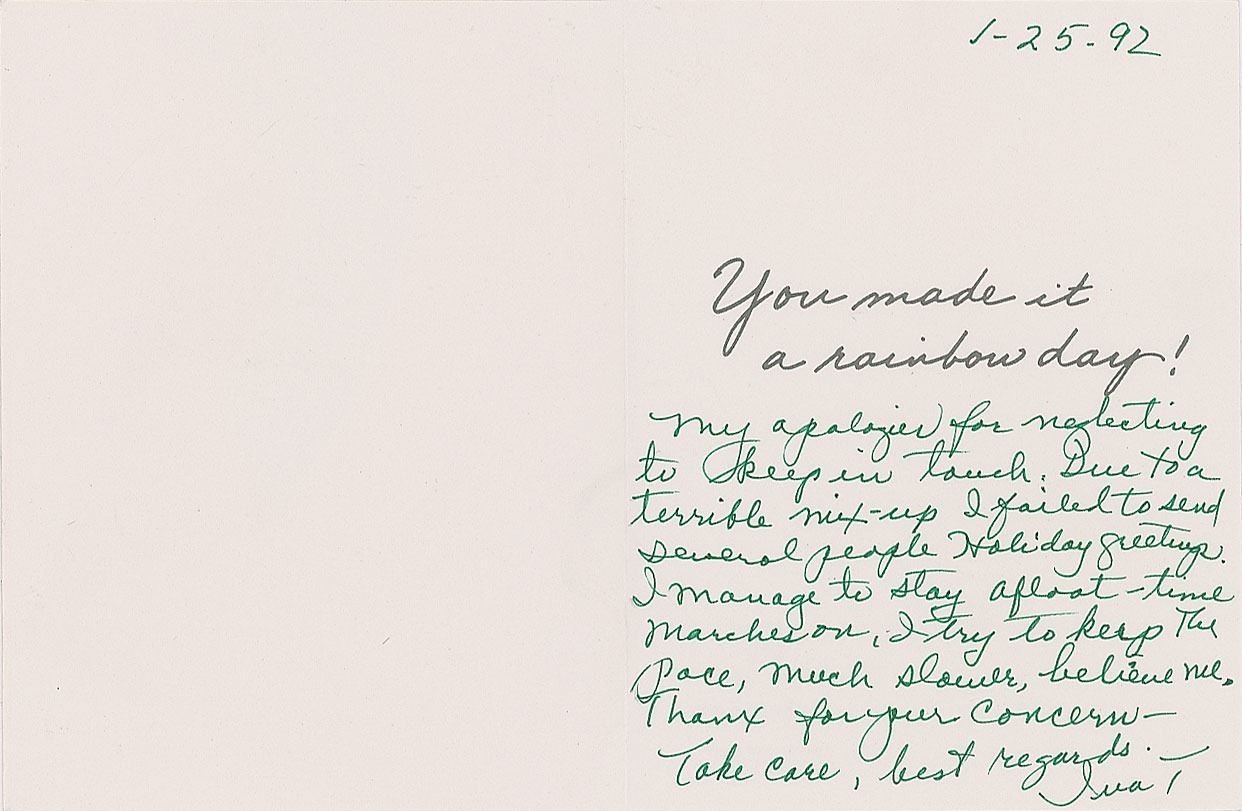 1-25-92
You made it
a rainbow day!
My apologies for neglecting
to keep in touch. Due to a
terrible mix-up I failed to send
several people Holiday greetings.
I manage to stay afloat - time
marches on, I try to keep the
pace, much slower, believe me.
Thanx for your concern -
Take care, best regards.
Iva T